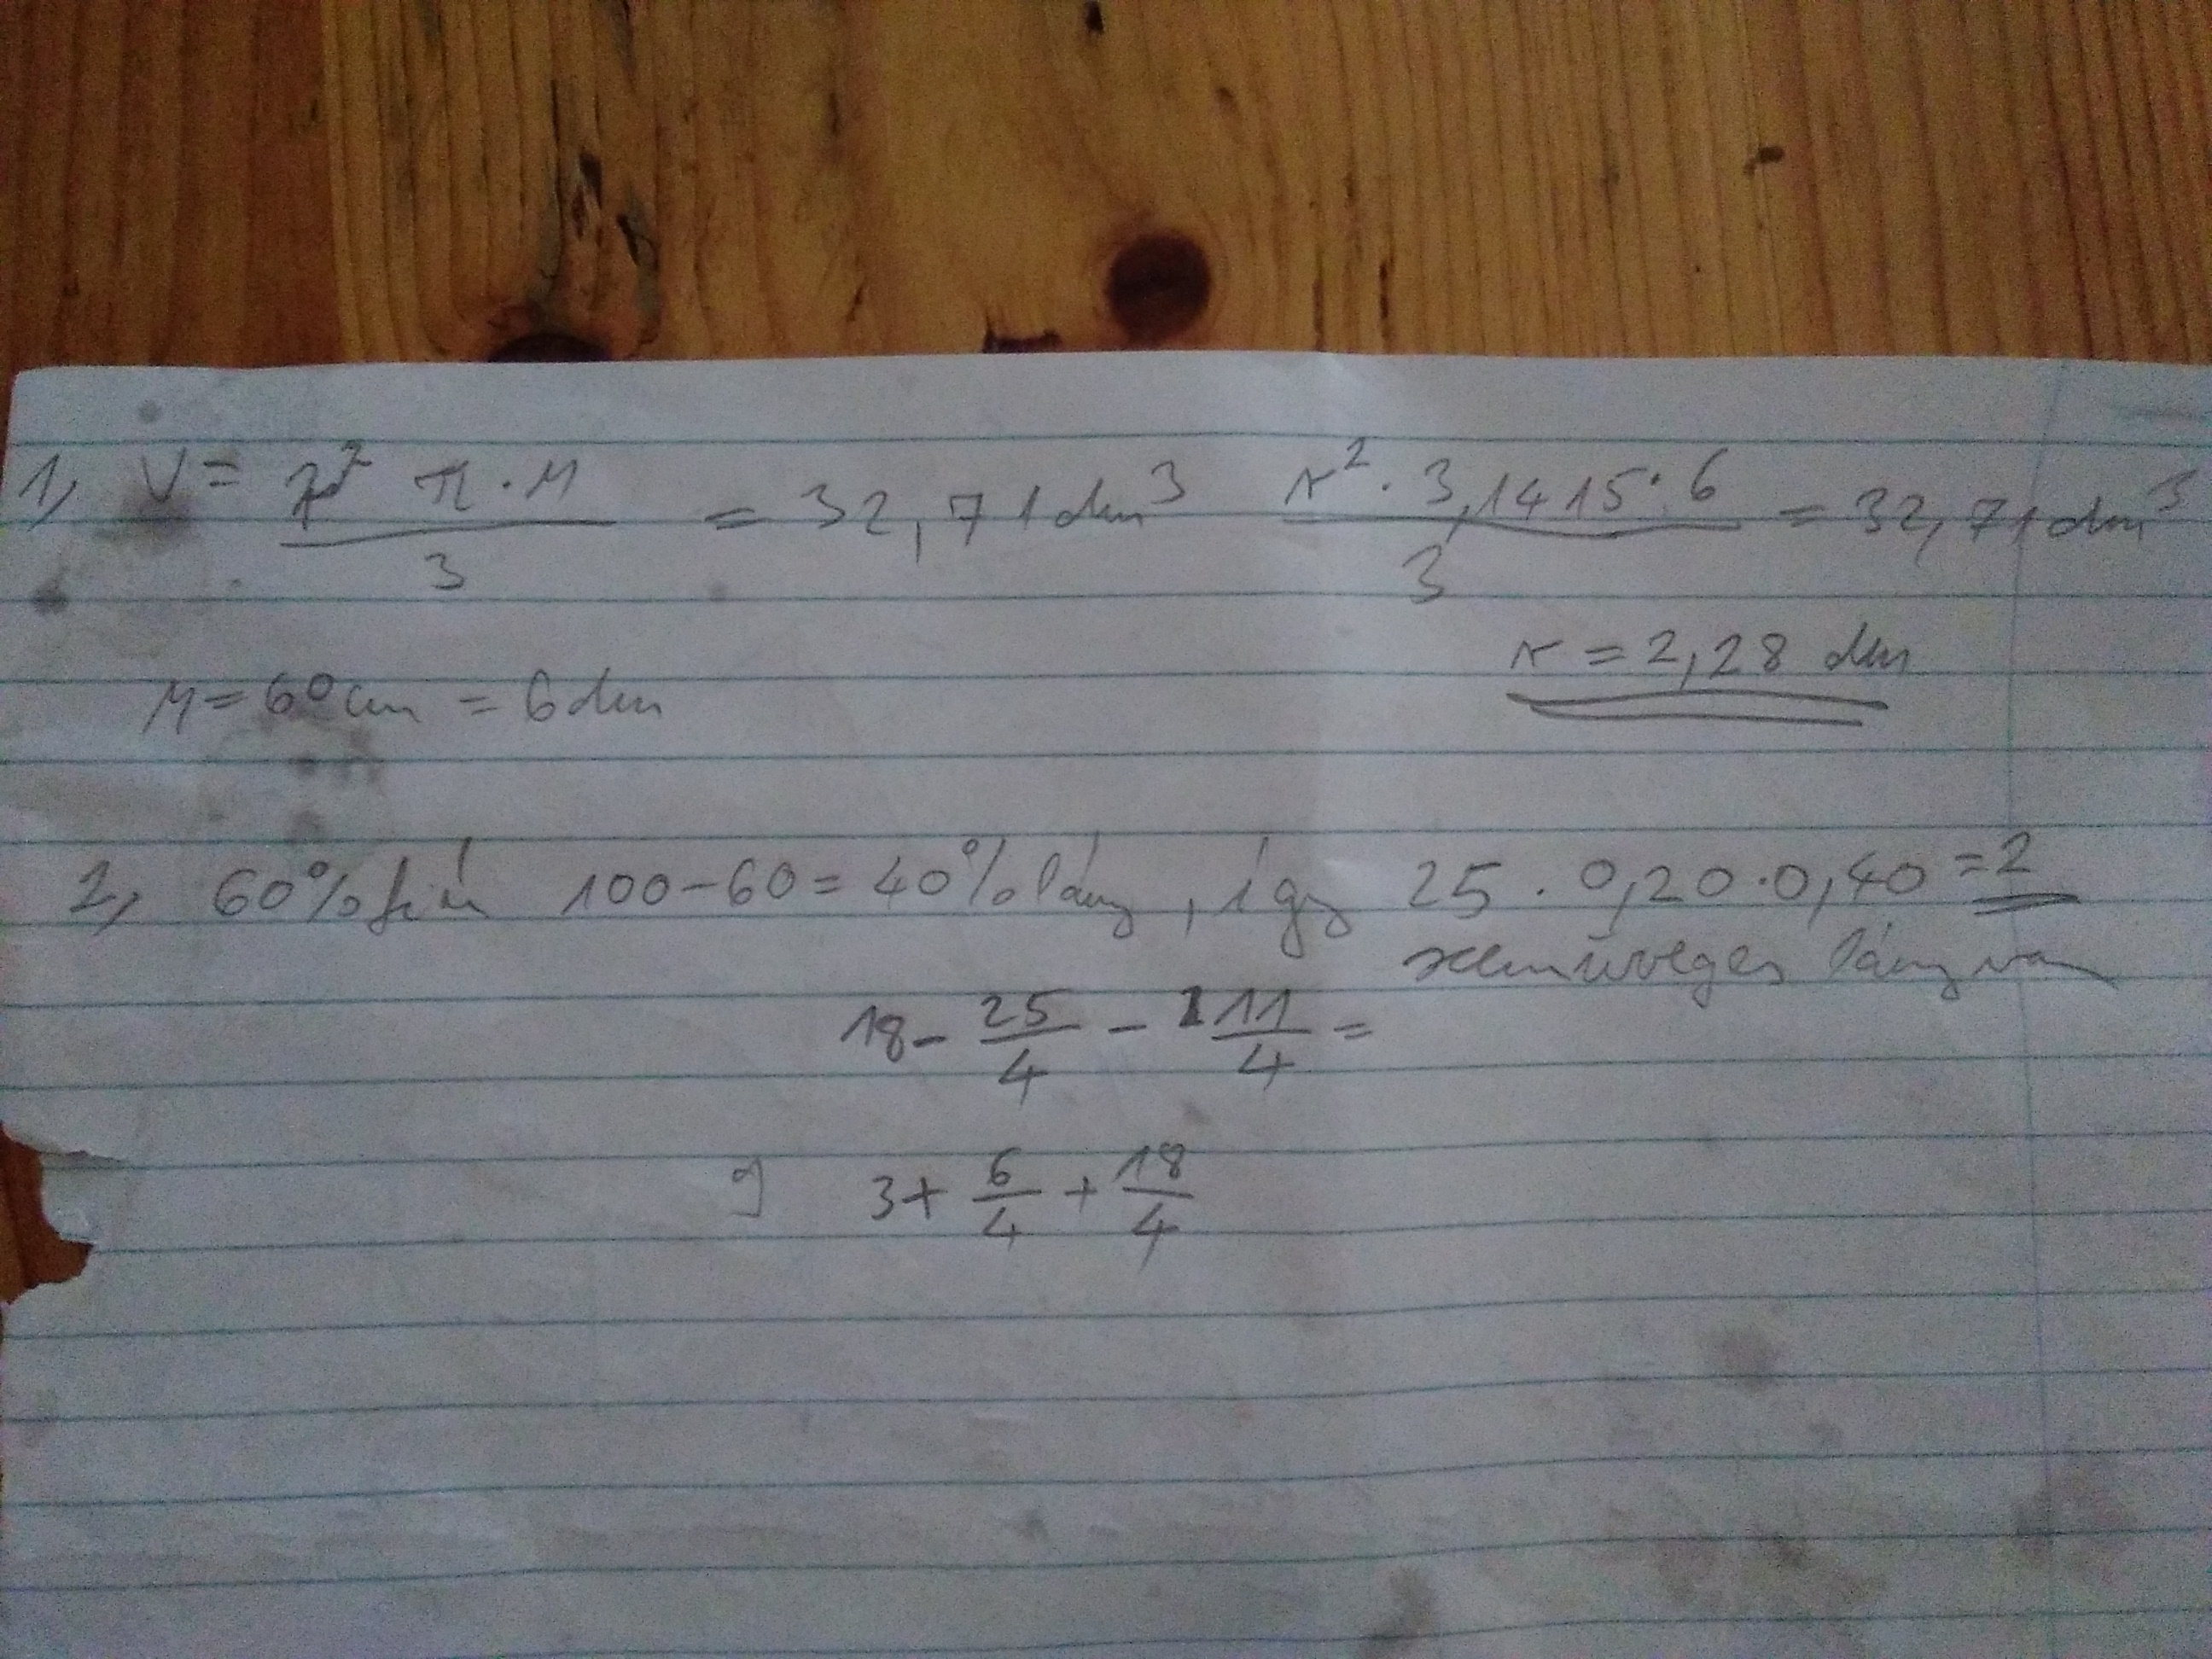 1, V = r² π · M / 3 = 32,71 dm³ r² · 3,1415 · 6 / 3 = 32,71 dm³
M = 60 cm = 6 dm r = 2,28 dm
2, 60% fiú 100-60 = 40% lány, így 25 · 0,20 · 0,40 = 2
szemüveges lány van
18 - 25/4 - 11/4 =
9 3 + 6/4 + 18/4